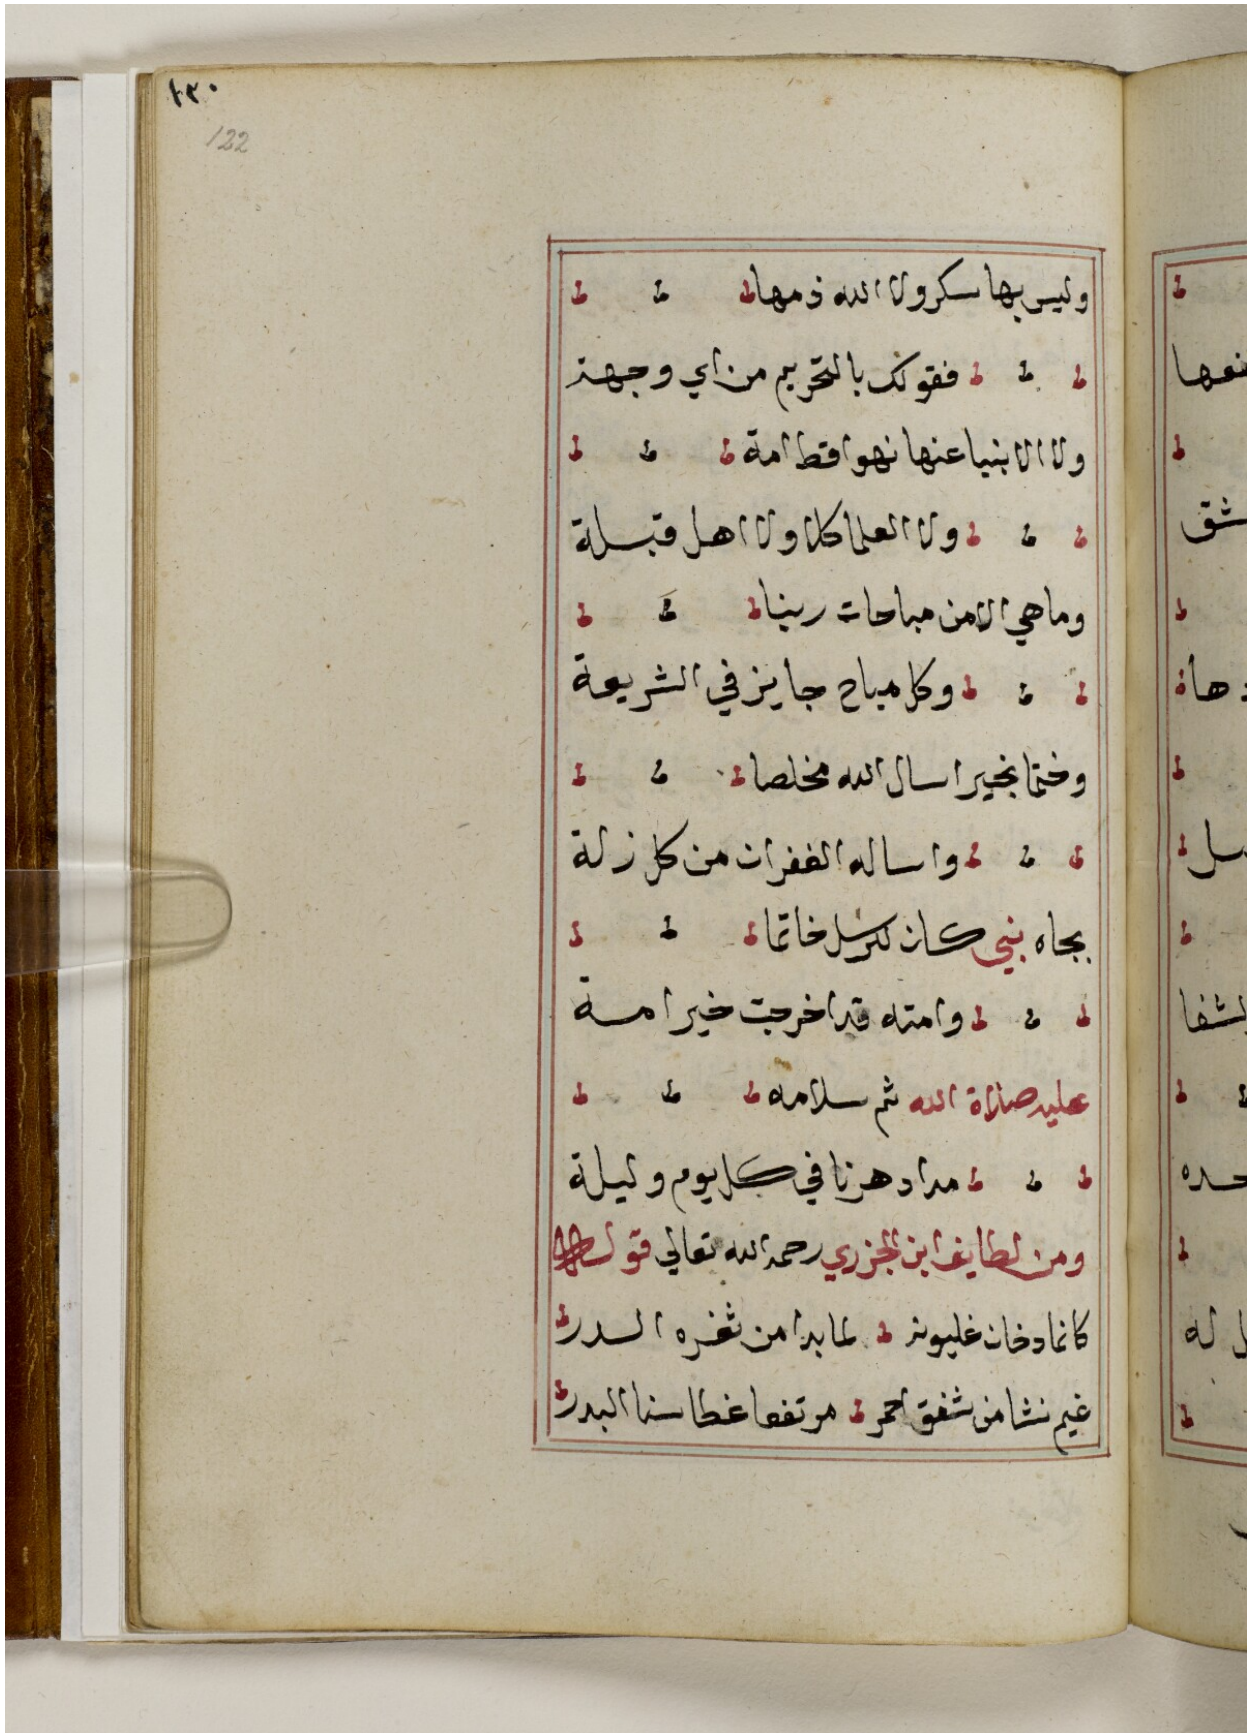 ١٣٠
122
وليس بها سكر ولا الله ذمها
فقولك بالتحريم من اي وجهة
ولا الانبيا عنها نهوا قط امة
ولا العلما كلا ولا اهل قبلة
وما هي الا من مباحات ربنا
وكل مباح جايز في الشريعة
وختما بخير اسال الله مخلصا
واساله الغفران من كل زلة
بجاه نبي كان للرسل خاتما
وامته قد اخرجت خير امة
عليه صلاة الله ثم سلامه
مدا دهرنا في كل يوم وليلة
ومن لطايف ابن الجزري رحمه الله تعالي قوله
كانما دخان غليونه لما بدا من ثغره الدر
غيم نشا من شفق احمر مرتفعا غطا سنا البدر
نعها
شق
دها
سل
لشفا
حده
ل له